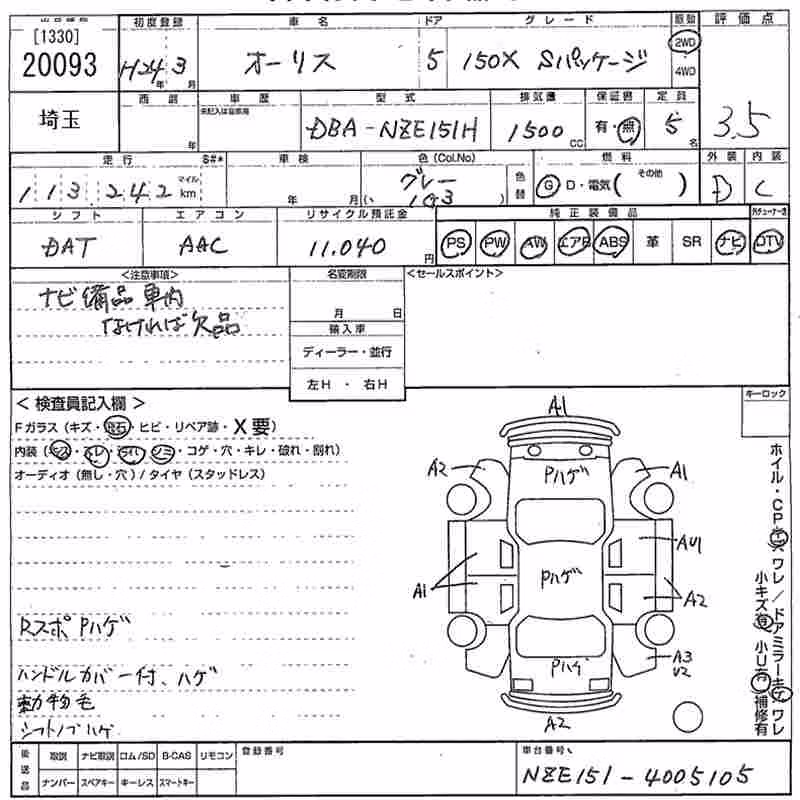 出品番号 初度登録 車名 ドア グレード 駆動 評価点
[1330]
20093 H24年 3月 オーリス 5 150X Sパッケージ 2WD 4WD
埼玉 西暦 年 車歴 未記入は自家用 型式 DBA-NZE151H 排気量 1500cc 保証書 有・無 定員 5名 3.5
走行 S#* 車検 色(Col.No) 燃料 外装 内装
113242 マイル km 年 月 グレー 1G3 色替 G D・電気( その他 ) D C
シフト エアコン リサイクル預託金 純正装備品
DAT AAC 11.040円 PS PW AW エアB ABS 革 SR ナビ DTV
<注意事項> 名変期限 <セールスポイント>
ナビ備品車内
なければ欠品
月 日
輸入車
ディーラー・並行
左H・右H
<検査員記入欄> キーロック
Fガラス(キズ・飛石・ヒビ・リペア跡・X要)
内装(キズ・スレ・汚れ・シミ・コゲ・穴・キレ・破れ・割れ)
オーディオ(無し・穴)/タイヤ(スタッドレス)
A1
A2 Pハゲ A1
AU1
Pハゲ
A1 A2
Pハゲ A3
U2
A2
Rスポ Pハゲ
ハンドルカバー付、ハゲ
動物毛
シフトノブハゲ
ホイル・CPキズ ワレ/ドアミラーキズ ワレ
小キズ有 小U有 補修有
後送品 取説 ナビ取説 ロム/SD B-CAS リモコン 登録番号 車台番号
ナンバー スペアキー キーレス スマートキー NZE151-4005105